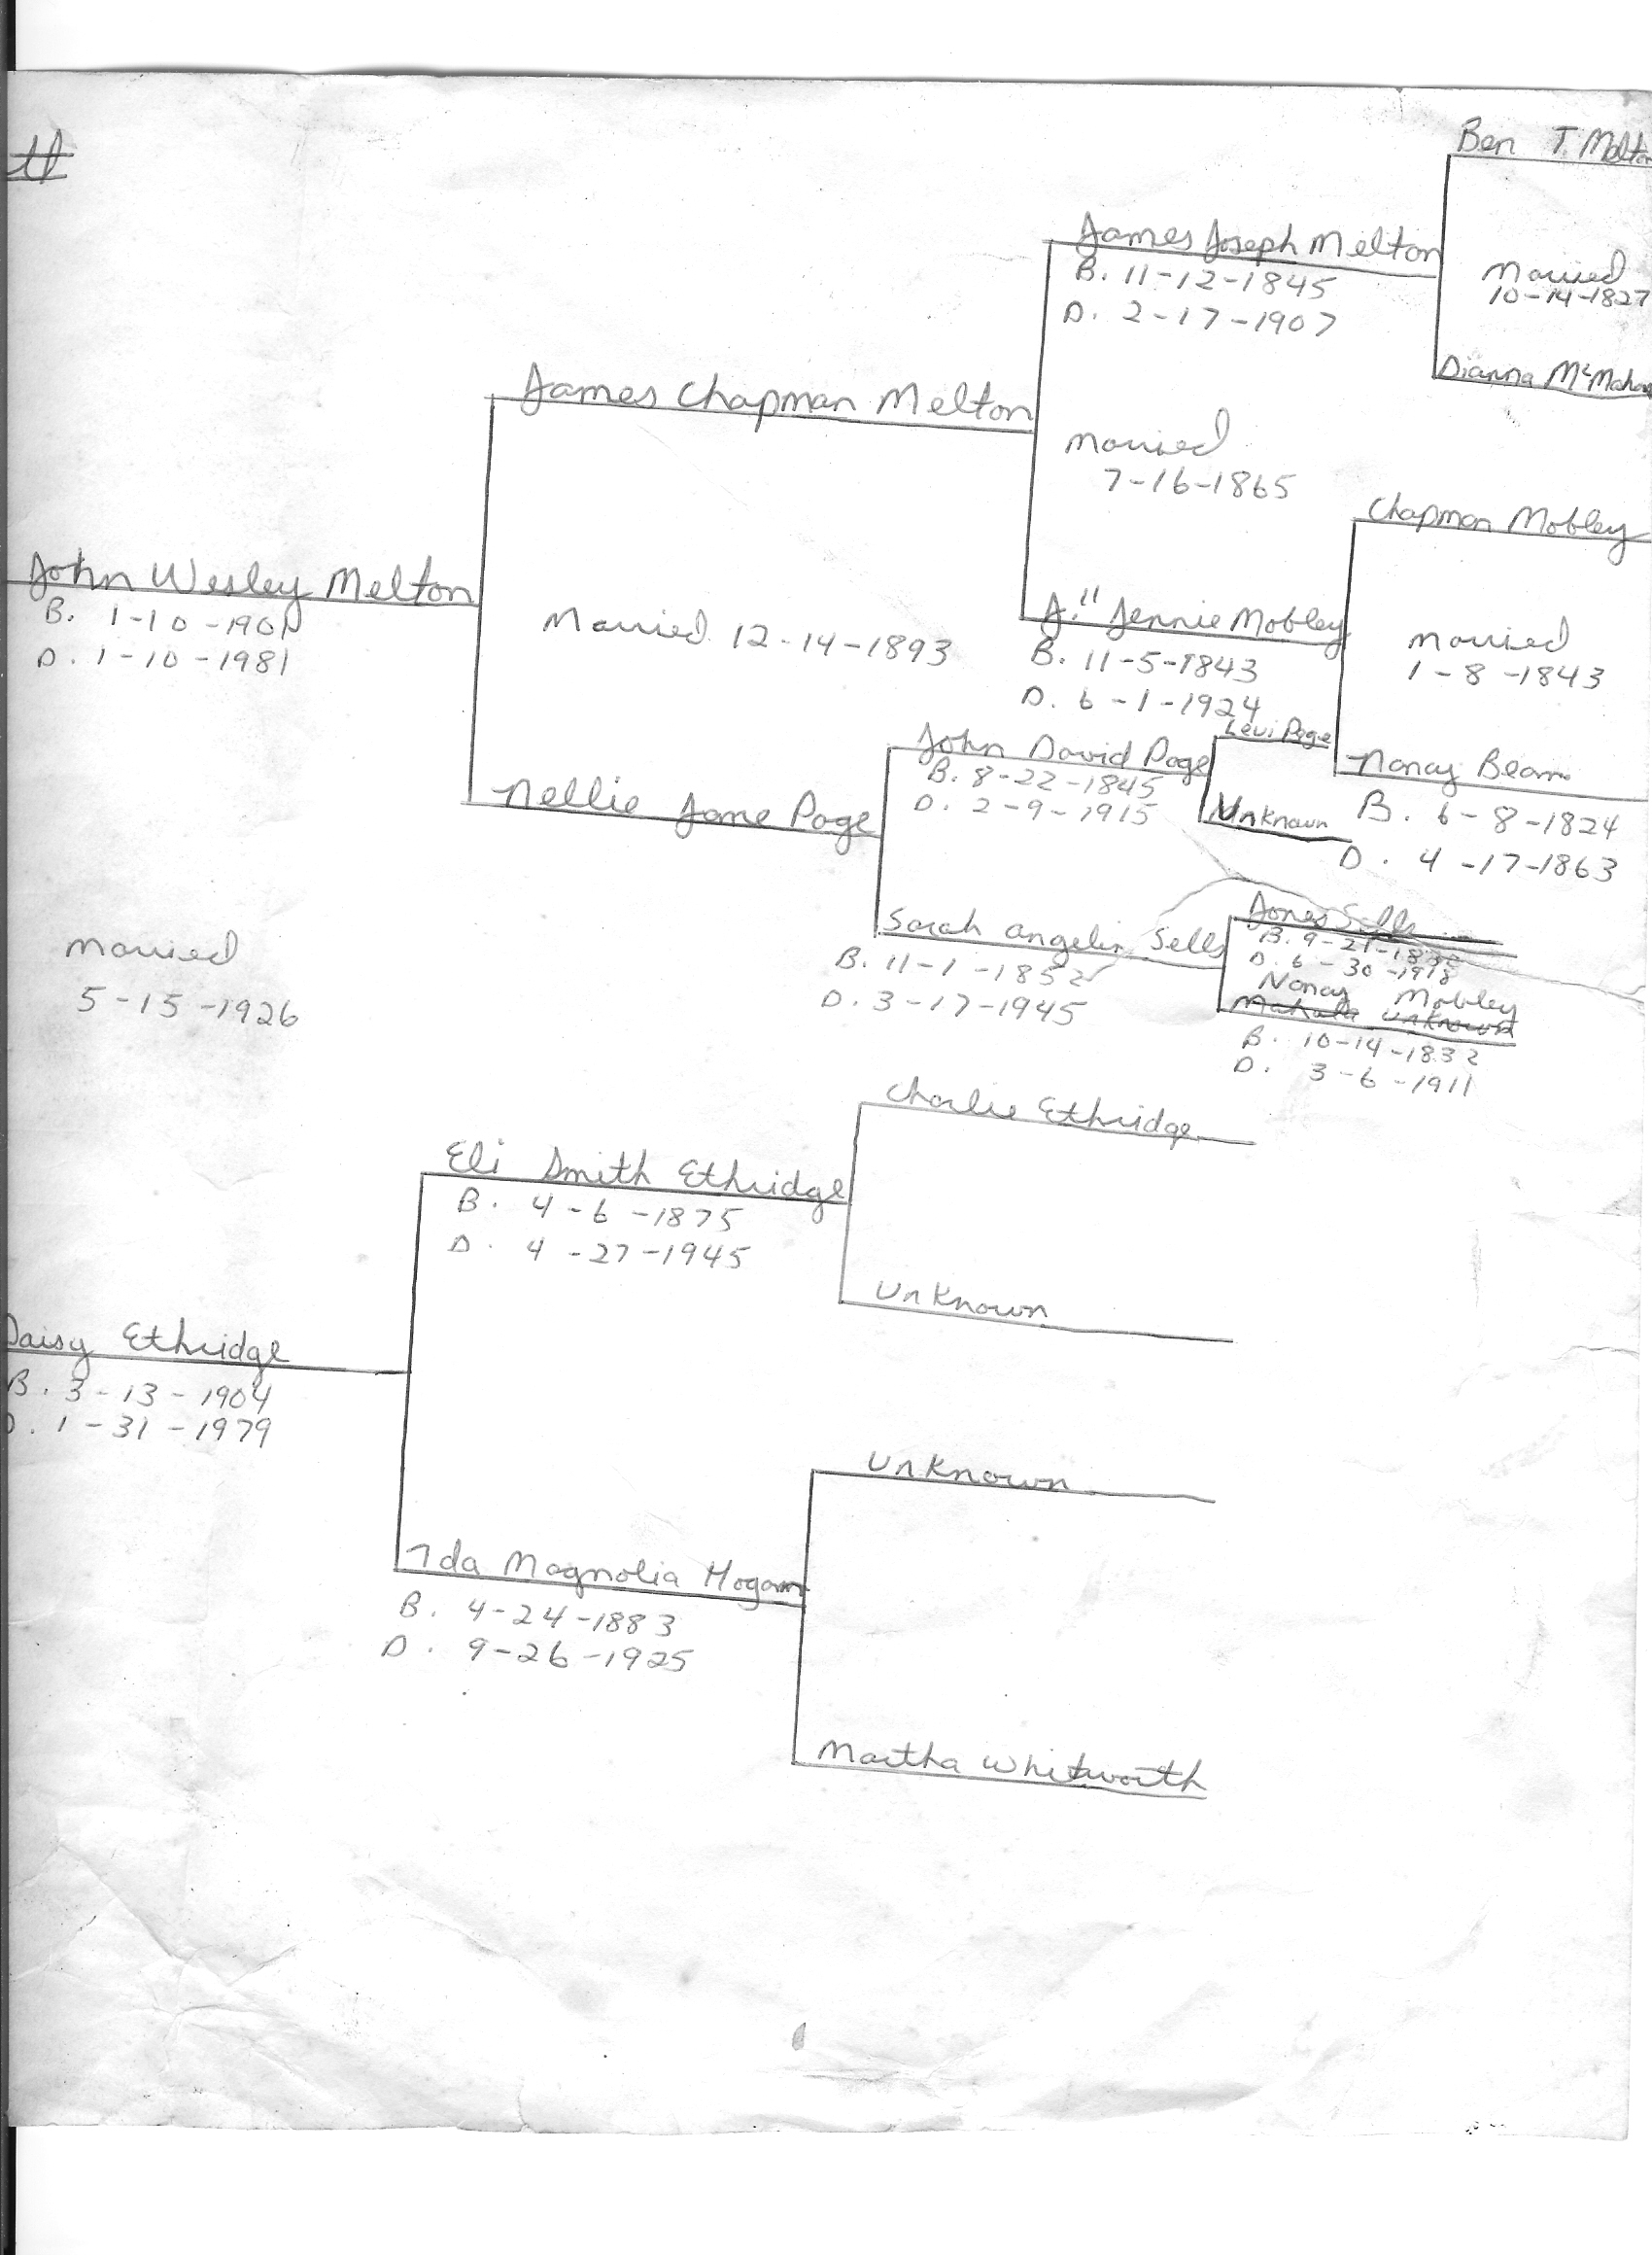 tt
Ben T. Melton
James Joseph Melton
B. 11-12-1845
D. 2-17-1907
Married
10-14-1827
Dianna McMahan
James Chapman Melton
Married
7-16-1865
Chapman Mobley
John Wesley Melton
B. 1-10-1901
D. 1-10-1981
Married 12-14-1893
J." Jennie Mobley
B. 11-5-1843
D. 6-1-1924
Married
1-8-1843
Levi Page
John David Page
B. 8-22-1845
D. 2-9-1915
Unknown
Nancy Beam
B. 6-8-1824
D. 4-17-1863
Nellie Jane Page
Sarah Angelin Sells
B. 11-1-1852
D. 3-17-1945
Jones Sells
B. 9-21-1832
D. 6-30-1918
Nancy Mobley
Mahala Unknown
B. 10-14-1832
D. 3-6-1911
Married
5-15-1926
Charlie Ethridge
Eli Smith Ethridge
B. 4-6-1875
D. 4-27-1945
Unknown
Daisy Ethridge
B. 3-13-1904
D. 1-31-1979
Unknown
Ida Magnolia Hogan
B. 4-24-1883
D. 9-26-1925
Martha Whitworth